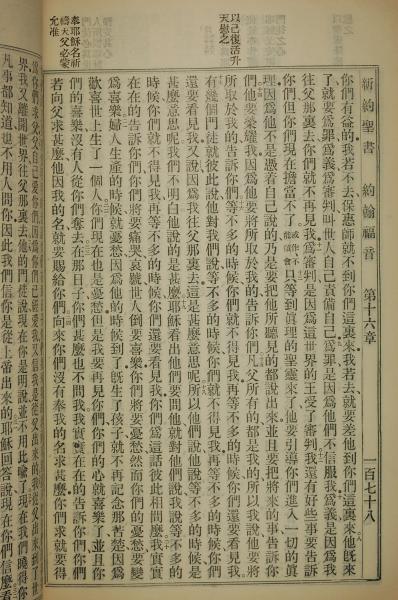 新約聖書 約翰福音 第十六章 一百七十八
以己復活升
天慰之
奉耶穌名祈
禱天父必蒙
允准
你們有益的、我若不去、保惠師就不到你們這裏來、我若去、就要差他到你們這裏來、他旣來
了、就要爲罪爲義爲審判、叫世人自己責備自己、爲罪是因爲他們不信服我、爲義是因爲我
往父那裏去、你們就不再見我、爲審判是因爲這世界的王受了審判、我還有好些事要告訴
你們、但你們現在擔當不了、或作你們不能領會只等到眞理的聖靈來了、他要引導你們進入一切的眞
理、因爲他不是憑着自己說的、乃是要把他所聽見的都說出來、並且要把將來的事告訴你
們、他要榮耀我、因爲他要將所取於我的告訴你們、凡父所有的都是我的、所以我說他要將
所取於我的告訴你們、等不多的時候、你們就不得見我、再等不多的時候、你們還要看見我、
有幾個門徒就彼此說、他對我們說、等不多的時候、你們就不得見我、再等不多的時候、你們
還要看見我、又說因爲我往父那裏去、這是甚麼意思呢、所以他們說、他說等不多的時候、是
甚麼意思呢、我們不明白他說的是甚麼、耶穌看出他們要問他、就對他們說、我說等不多的
時候、你們就不得見我、再等不多的時候、你們還要看見我、你們爲這話彼此相問麼、我實實
在在的告訴你們、你們將要痛哭哀號、世人倒要喜樂、你們將要憂愁、然而你們的憂愁要變
爲喜樂、婦人生產的時候就憂愁、因爲他的時候到了、旣生了孩子、就不再記念那苦楚、因爲
歡喜世上生了一個人、你們現在也是憂愁、但是我要再見你們、你們的心就喜樂了、並且你
們的喜樂、沒有人從你們奪去、在那日子、你們甚麼也不問我、我實實在在的告訴你們、你們
若向父求甚麼、他因我的名就要賜給你們、向來你們沒有奉我的名求甚麼、你們求就要得
爲你們求父、父自己愛你們、因爲你們已經愛我、又信我是從父出來的、我從父出來到了世
界、我又離開世界、往父那裏去、他的門徒說、現在你是明說、並不用比喩了、現在我們曉得你
凡事都知道、也不用人問你、因此我們信你是從上帝出來的、耶穌回答說、現在你們信麼、看